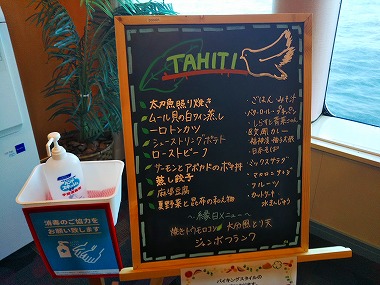 TAHITI
太刀魚照り焼き
ムール貝の白ワイン蒸し
一口トンカツ
シューストリングポテト
ローストビーフ
サーモンとアボカドのポキ丼
蒸し餃子
麻婆豆腐
夏野菜と昆布の和え物
・ごはん・みそ汁
・バターロール・
・しらすと
・カレー
・福神漬・
・日本そば
・ミックスサラダ
・マカロニサラダ
・フルーツ
・カットケーキ
・水まんじゅう
〜縁日メニュー〜
焼きトウモロコシ 大分風とり天
ジャンボフランク
消毒のご協力を
お願い致します
バイキングスタイルの